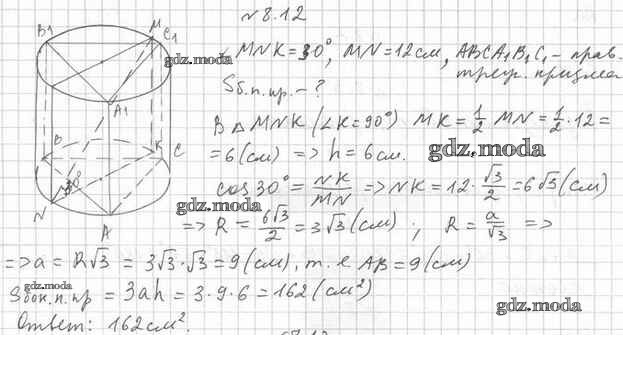 №8.12
∠MNK=30°, MN=12см, ABCA₁B₁C₁ – прав.
треуг. призма
Sб.п.пр. – ?
В △MNK (∠K=90°) MK = 1/2 MN = 1/2 · 12 =
= 6(см) => h = 6см.
cos30° = NK/MN => NK = 12 · √3/2 = 6√3(см)
=> R = 6√3/2 = 3√3(см) ; R = a/√3 =>
=> a = R√3 = 3√3·√3 = 9(см), т.е AB = 9(см)
Sбок.п.пр = 3ah = 3·9·6 = 162(см²)
Ответ: 162см².
B1
M
C1
A1
B
K
C
30°
N
A
gdz.moda
gdz.moda
gdz.moda
gdz.moda
gdz.moda